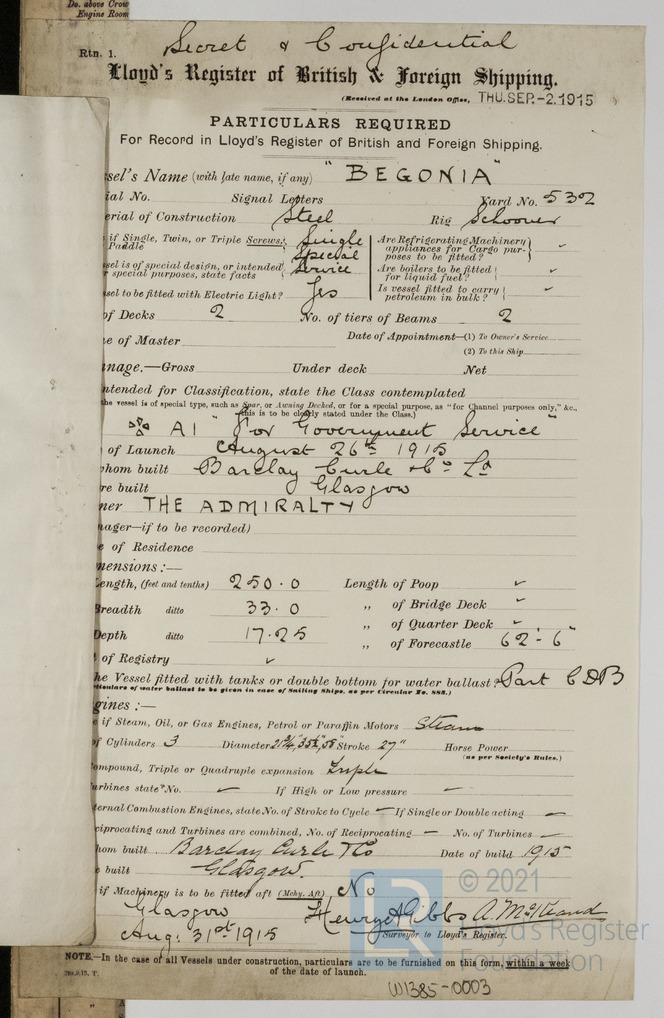 Do. above Crow
Engine Room
Secret & Confidential
Rtn. 1.
Lloyd's Register of British & Foreign Shipping.
(Received at the London Office, THU. SEP. -2. 1915
PARTICULARS REQUIRED
For Record in Lloyd's Register of British and Foreign Shipping.
ssel's Name (with late name, if any) "BEGONIA"
ial No. Signal Letters Yard No. 532
erial of Construction Steel Rig Schooner
if Single, Twin, or Triple Screws, Single
Paddle
Are Refrigerating Machinery appliances for Cargo purposes to be fitted? ✓
ssel is of special design, or intended Special
r special purposes, state facts Service
Are boilers to be fitted for liquid fuel? ✓
ssel to be fitted with Electric Light? Yes
Is vessel fitted to carry petroleum in bulk? ✓
of Decks 2 No. of tiers of Beams 2
e of Master Date of Appointment—(1) To Owner's Service
(2) To this Ship
nnage.—Gross Under deck Net
ntended for Classification, state the Class contemplated
the vessel is of special type, such as Spar, or Awning Decked, or for a special purpose, as "for Channel purposes only," &c.,
this is to be clearly stated under the Class.)
A1 "For Government Service"
of Launch August 26th 1915
hom built Barclay Curle & Co Ld
re built Glasgow
ner THE ADMIRALTY
nager—if to be recorded)
e of Residence
mensions :—
Length, (feet and tenths) 250.0 Length of Poop ✓
Breadth ditto 33.0 „ of Bridge Deck ✓
„ of Quarter Deck ✓
Depth ditto 17.25 „ of Forecastle 62'-6"
of Registry ✓
he Vessel fitted with tanks or double bottom for water ballast? Part C D B
rticulars of water ballast to be given in case of Sailing Ships, as per Circular No. 883.)
gines :—
e if Steam, Oil, or Gas Engines, Petrol or Paraffin Motors Steam
of Cylinders 3 Diameter Stroke 27" Horse Power
(as per Society's Rules.)
ompound, Triple or Quadruple expansion Triple
urbines state No. — If High or Low pressure —
ternal Combustion Engines, state No. of Stroke to Cycle — If Single or Double acting —
ciprocating and Turbines are combined, No. of Reciprocating — No. of Turbines —
hom built Barclay Curle & Co Date of build 1915
e built Glasgow.
if Machinery is to be fitted aft (Mchy. Aft) No
Glasgow Henry A Gibbs
Aug: 31st 1915 Surveyor to Lloyd's Register.
© 2021
Lloyd's Register
Foundation
NOTE.—In the case of all Vessels under construction, particulars are to be furnished on this form, within a week
of the date of launch.
W1385-0003